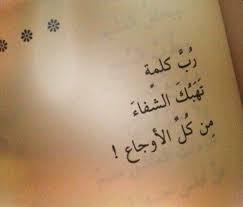 * * *
رُبَّ كلمةٍ
تَهَبُكَ الشفاءَ
مِن كُلِّ الأوجاع !